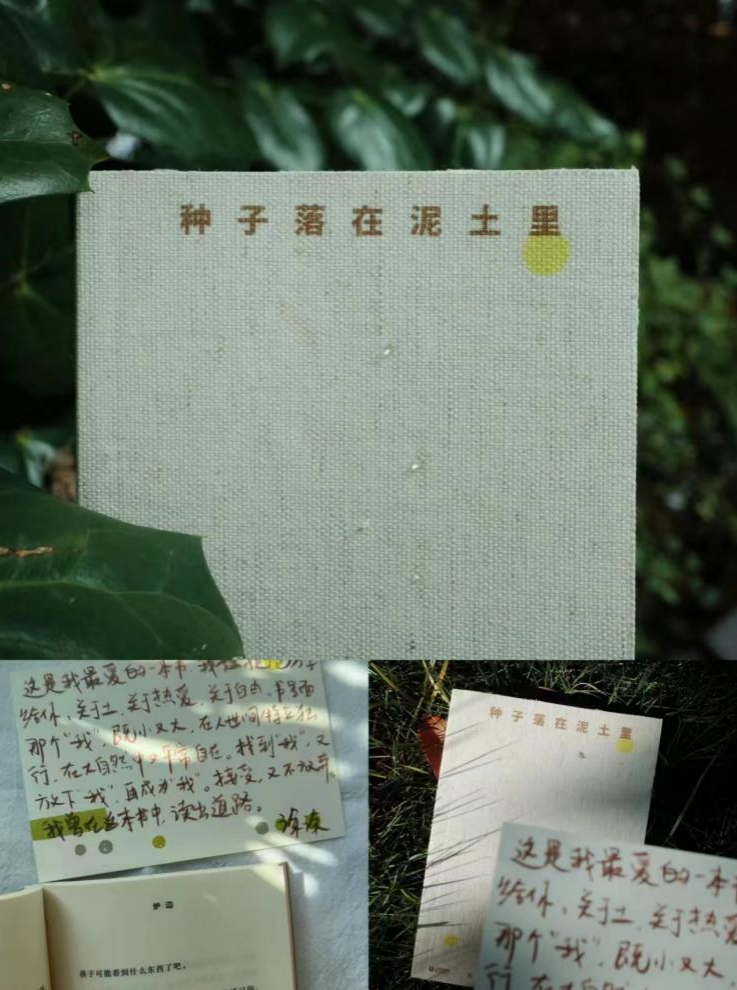 种子落在泥土里
这是我最爱的一本书
给你、关于土、关于热爱、关于自由、书里面
那个"我"，既小又大，在人世间
行，在大自然中又平常自在。找到"我"，又
放下"我"，自成为"我"。接受，又不放弃。
我曾在这本书中，读出道路。
炉边
孩子可能看到什么东西了吧。
种子落在泥土里
这是我最爱的一本
给你、关于土、关于热爱
那个"我"，既小又大、
行，在大自然